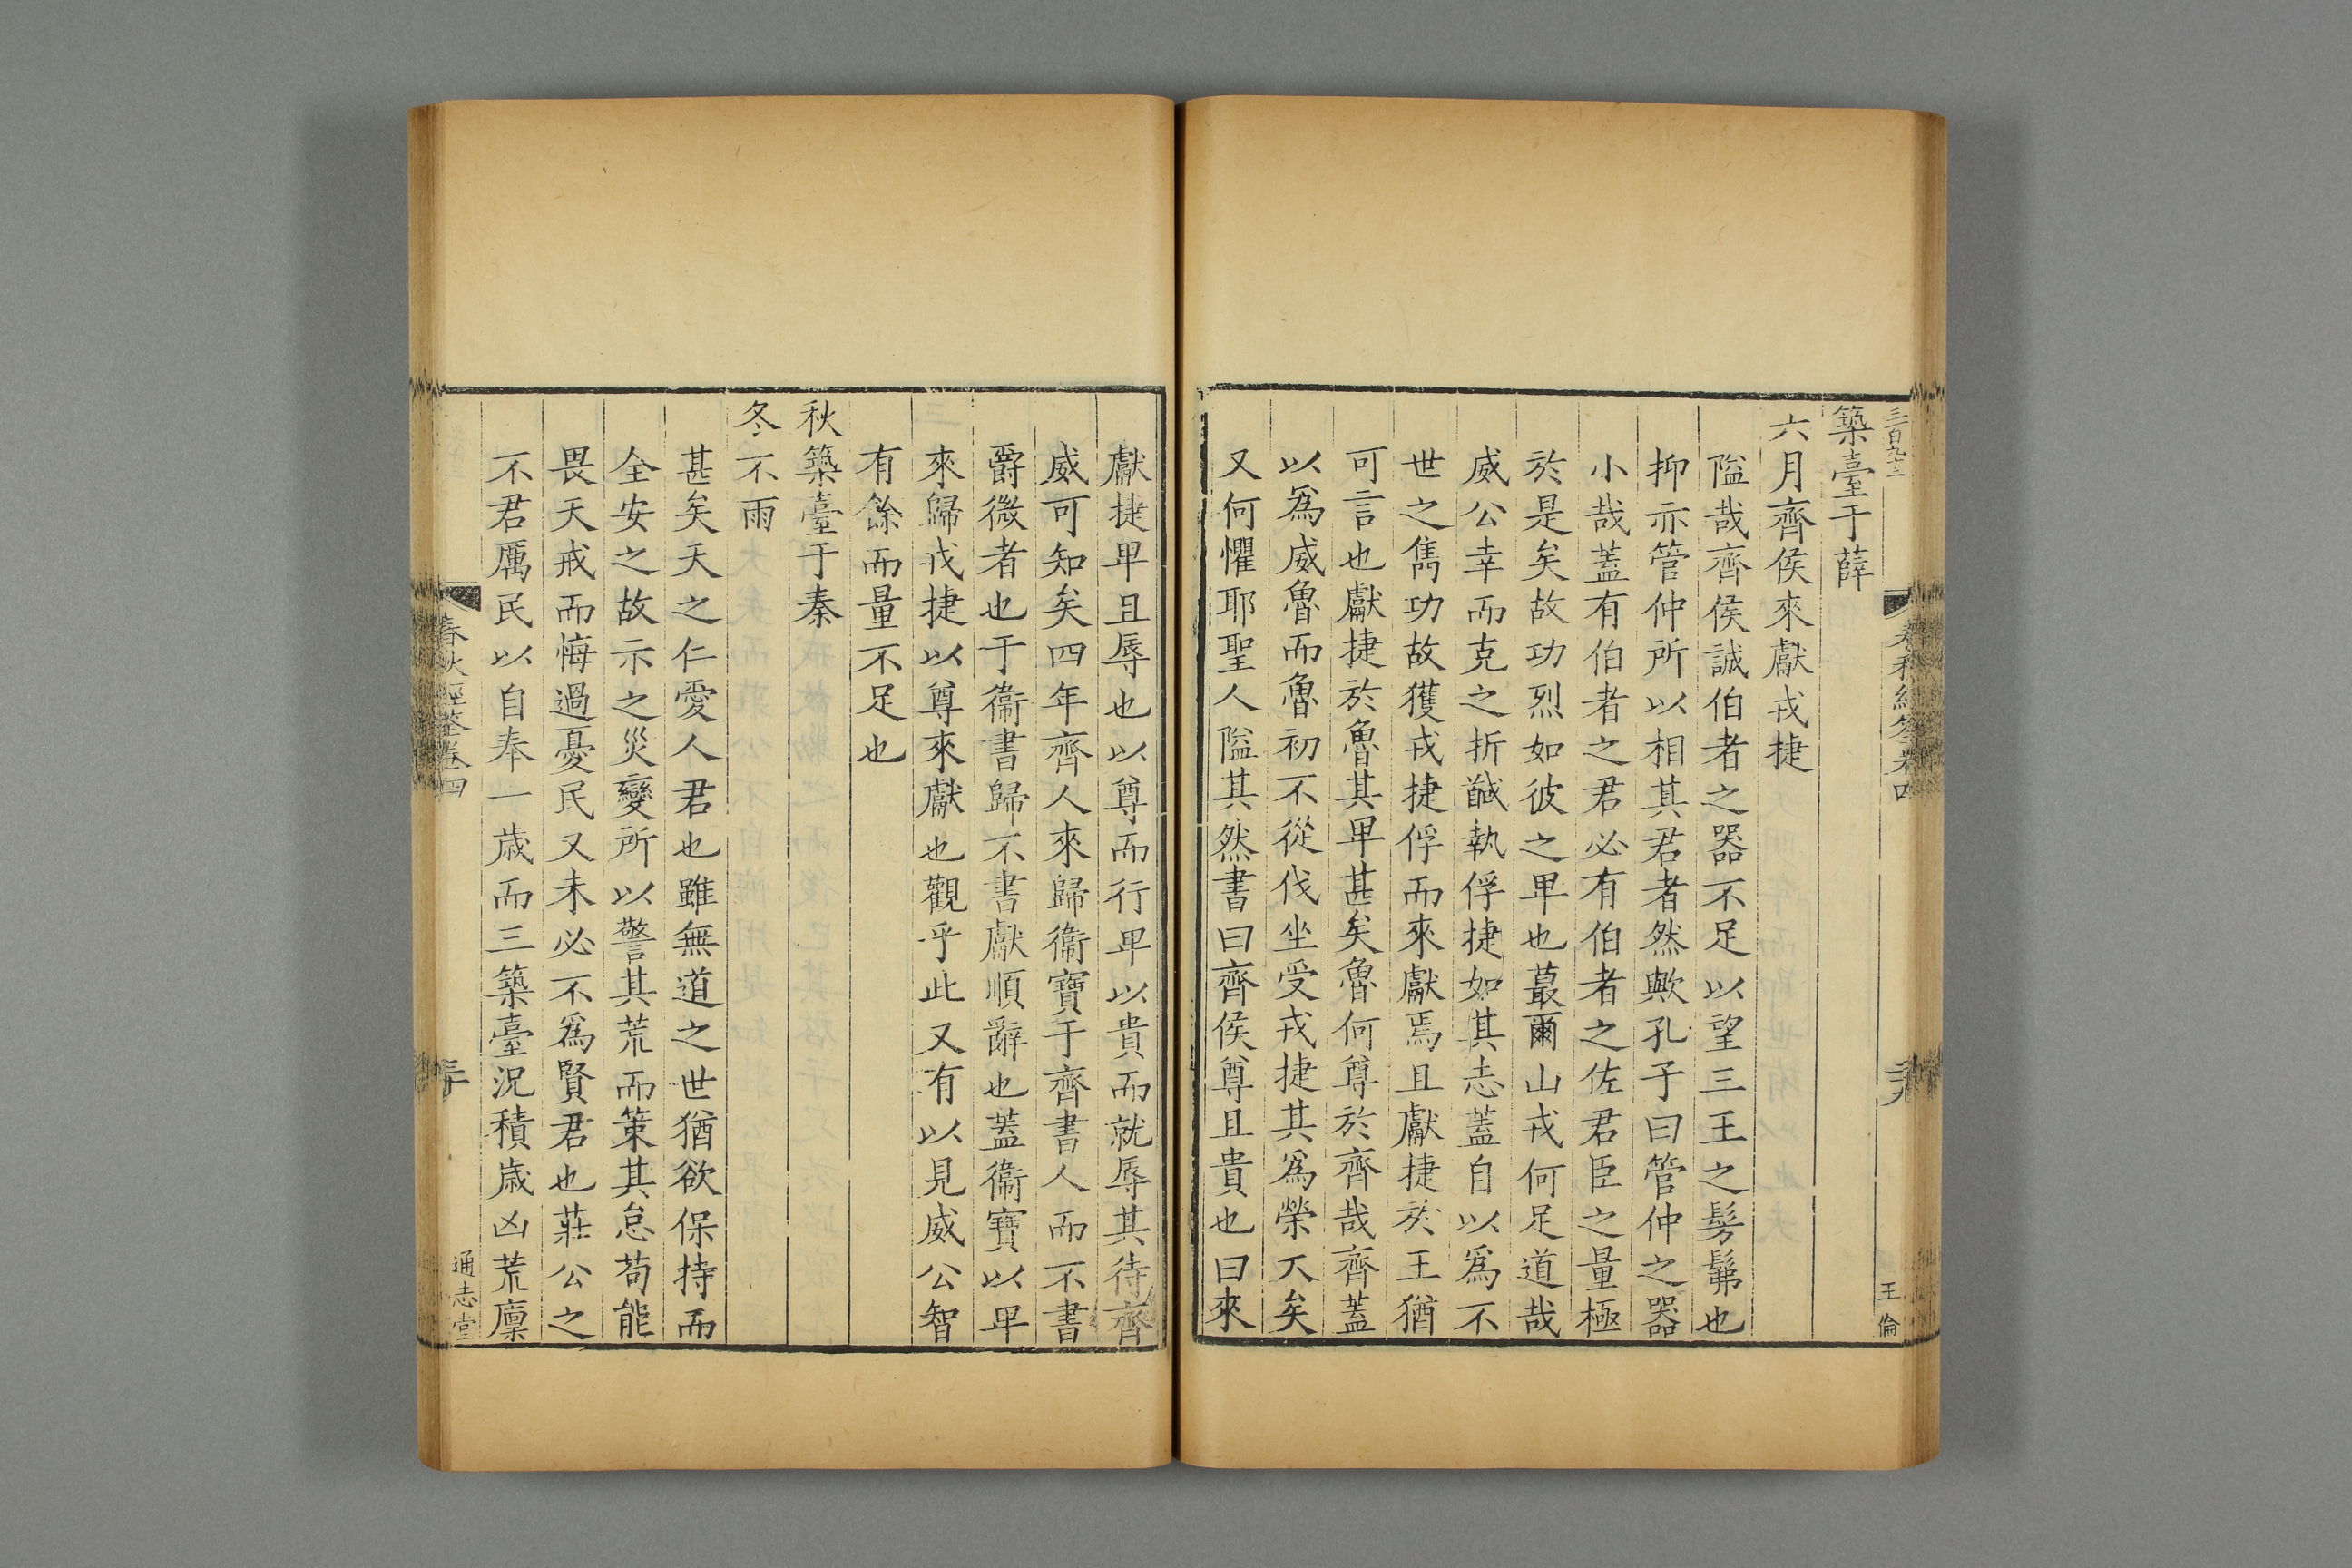 築臺于薛
六月齊侯來獻戎捷
隘哉齊侯誠伯者之器不足以望三王之髣髴也
抑亦管仲所以相其君者然歟孔子曰管仲之器
小哉蓋有伯者之君必有伯者之佐君臣之量極
於是矣故功烈如彼之卑也蕞爾山戎何足道哉
威公幸而克之折馘執俘捷如其志蓋自以爲不
世之雋功故獲戎捷俘而來獻焉且獻捷於王猶
可言也獻捷於魯其卑甚矣魯何尊於齊哉齊蓋
以爲威魯而魯初不從伐坐受戎捷其爲榮大矣
又何懼耶聖人隘其然書曰齊侯尊且貴也曰來
王倫
獻捷卑且辱也以尊而行卑以貴而就辱其待齊
威可知矣四年齊人來歸衞寶于齊書人而不書
爵微者也于衞書歸不書獻順辭也蓋衞寶以卑
來歸戎捷以尊來獻也觀乎此又有以見威公智
有餘而量不足也
秋築臺于秦
冬不雨
甚矣天之仁愛人君也雖無道之世猶欲保持而
全安之故示之災變所以警其荒而策其怠苟能
畏天戒而悔過憂民又未必不爲賢君也莊公之
不君厲民以自奉一歲而三築臺況積歲凶荒廩
春秋經筌卷四
三十
通志堂